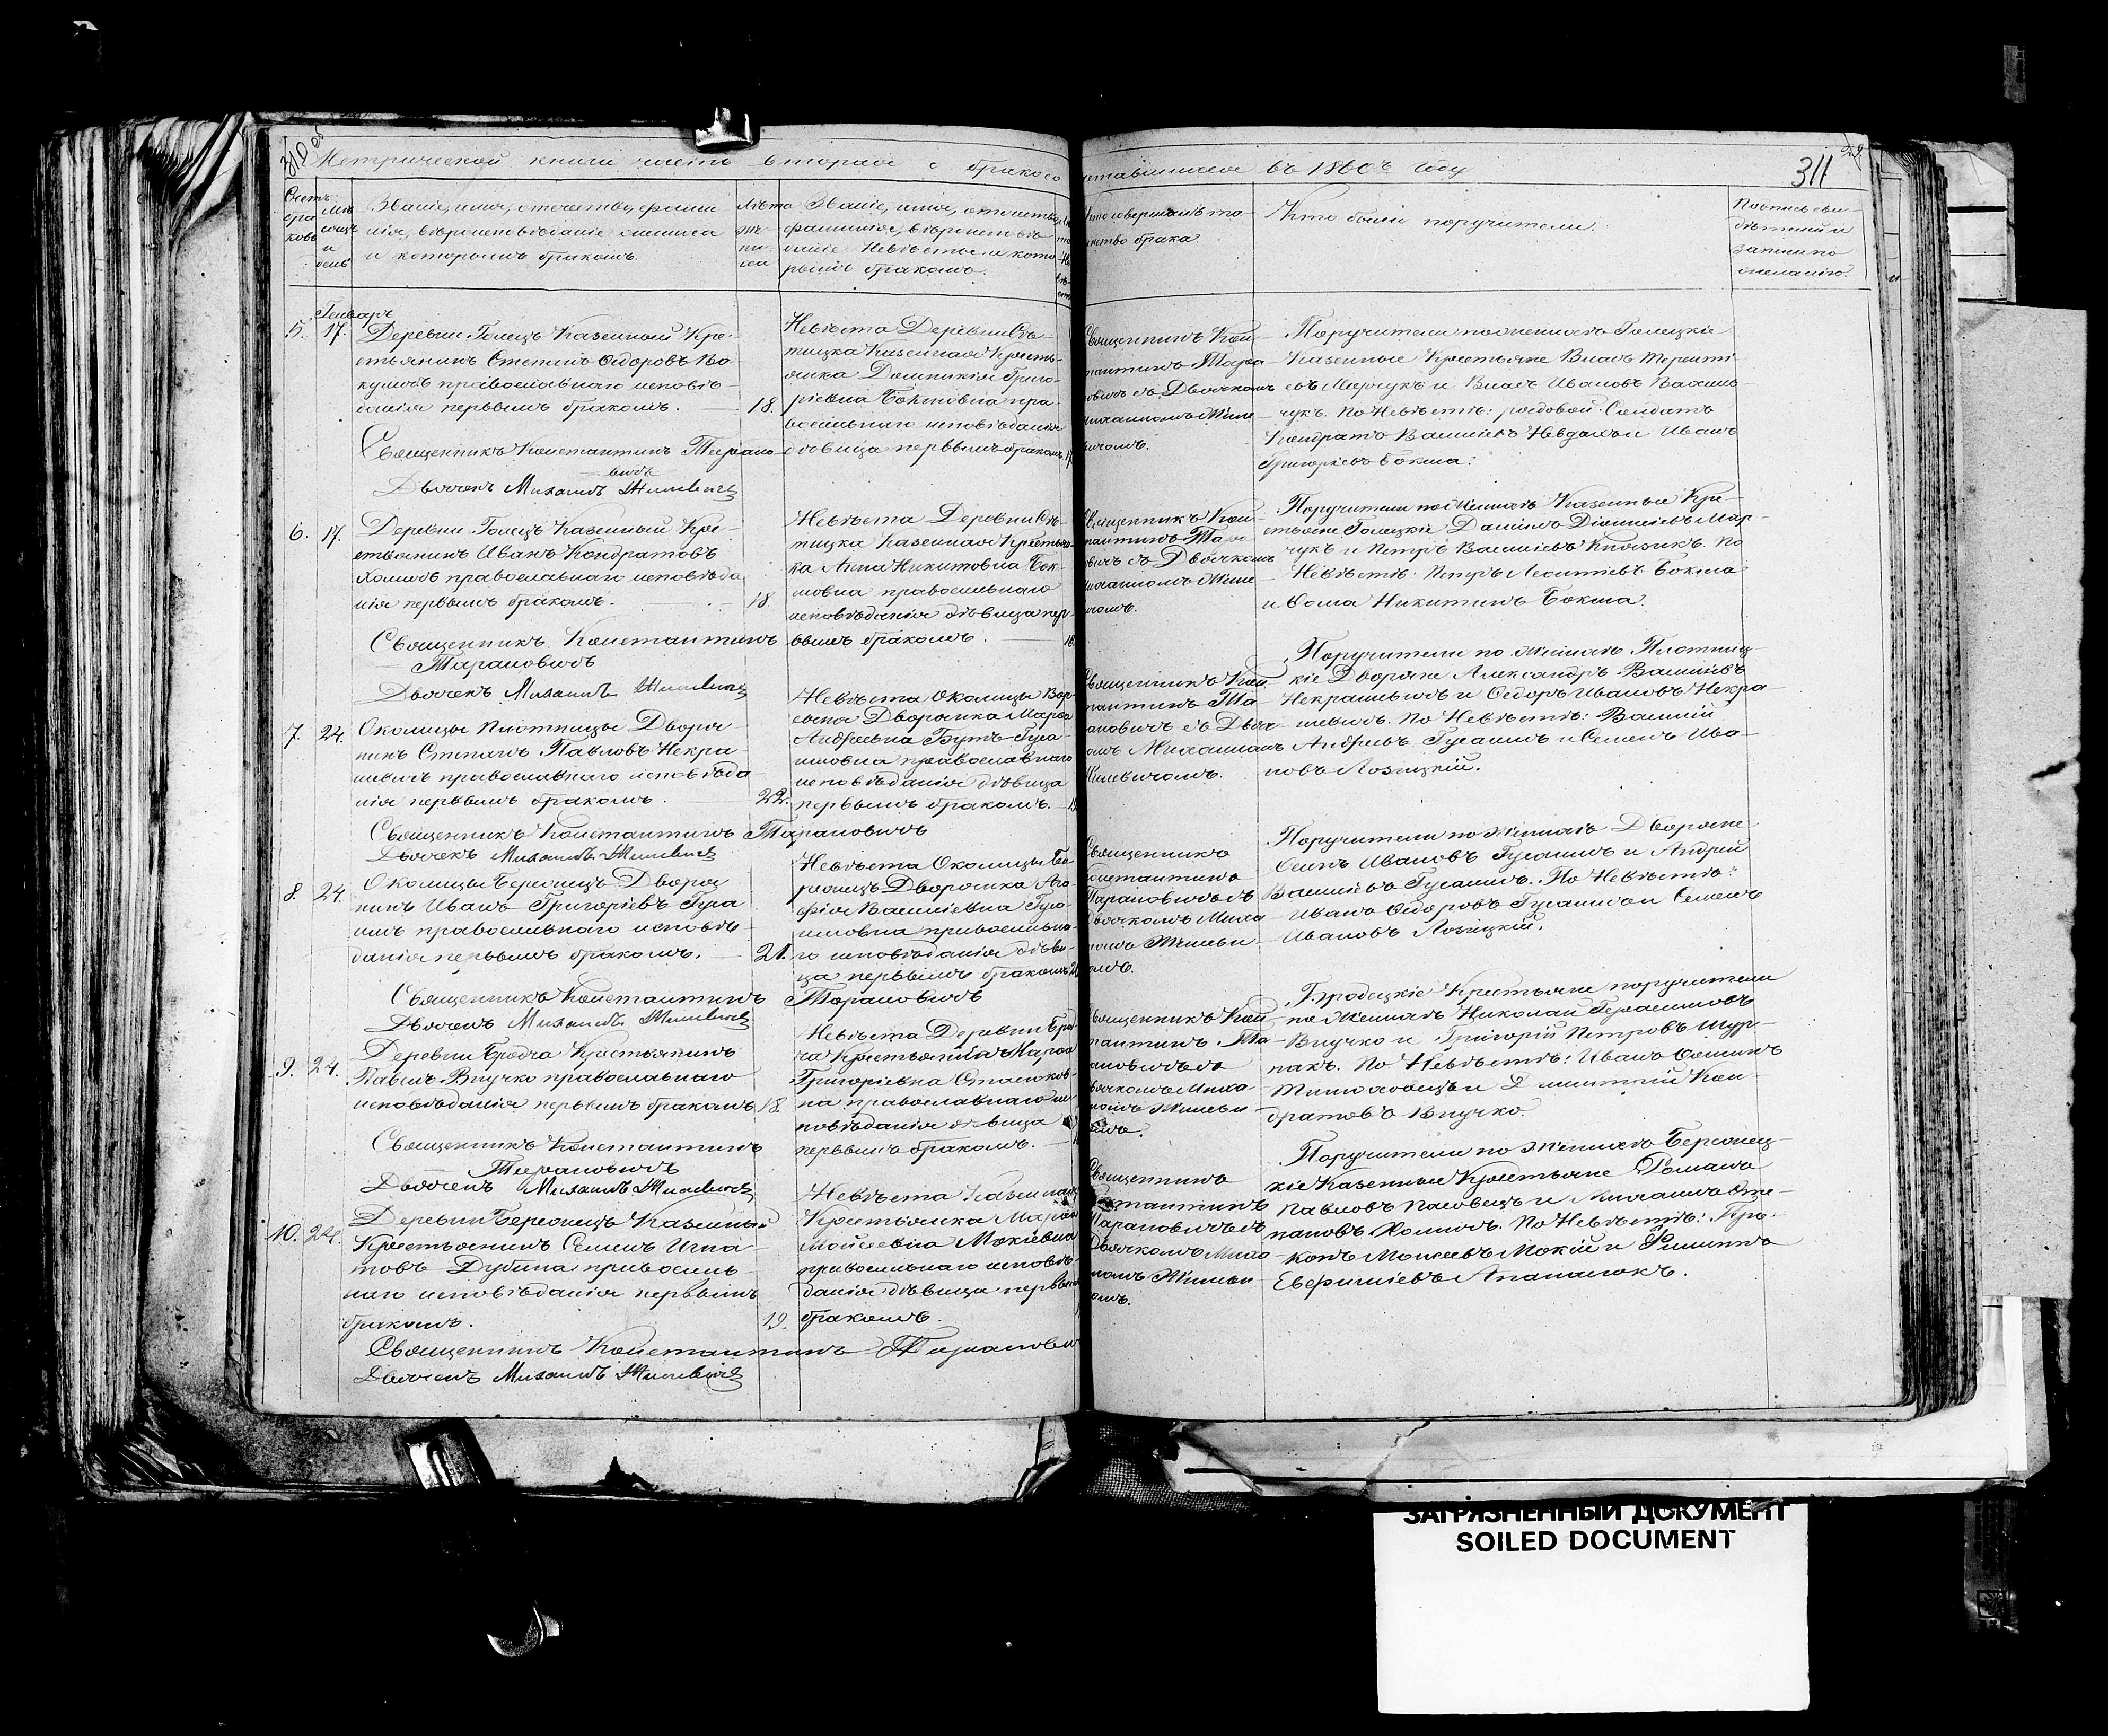 310 об
Метрической книги часть вторая о бракосо
четавшихся въ 1860мъ году
311
Счетъ бра ковъ
Мѣ сяцъ и день
Званіе, имя, отчество, фами
лія, вѣроисповѣданіе жениха
и которымъ бракомъ.
Лѣта же ни ха
Званіе, имя, отчество,
фамилія, вѣроисповѣ
даніе Невѣсты и кото
рымъ бракомъ.
Кто совершалъ та
инство брака.
Кто были поручители.
Подпись сви
дѣтелей
записи по
желанію.
Генварь
5. 17. Деревни Голецъ Казенный Кре
стьянинъ Степанъ Ѳедоровъ
православнаго исповѣ
данія первымъ бракомъ. 18.
Священникъ Константинъ Тарано
вичъ
Дьячекъ Михаилъ Жилевичъ
Невѣста Деревни Вѣ
Казенная Кресть
янка Домникія Григо
ріевна Бокшовна пра
вославнаго исповѣданія
дѣвица первымъ бракомъ
Священникъ Кон
стантинъ Тара
новичъ съ Дьячкомъ
Михаиломъ Жиле
вичомъ.
Поручители по женихѣ Голецкіе
Казенные Крестьяне Власъ Теренті
евъ Марчукъ и Власъ Ивановъ
По Невѣстѣ: рядовой Солдатъ
Кондратъ Васильевъ и Иванъ
Григоріевъ Бокша.
6. 17. Деревни Голецъ Казенный Кре
стьянинъ Иванъ Кондратовъ
Хомичъ православнаго исповѣда
нія первымъ бракомъ. 18.
Священникъ Константинъ
Тарановичъ
Дьячекъ Михаилъ Жилевичъ
Невѣста Деревни
Казенная Крестьян
ка Анна Никитовна Бок
шовна православнаго
исповѣданія дѣвица пер
вымъ бракомъ. 18
Священникъ Кон
стантинъ Тара
новичъ съ Дьячкомъ
Михаиломъ Жиле
вичомъ.
Поручители по Женихѣ Казенные Кре
стьяне Голецкіе Данило Діонисіевъ Мар
чукъ и Петръ Васильевъ Князикъ. По
Невѣстѣ: Петръ Леонтіевъ Бокша
и Ѳома Никитинъ Бокша.
7. 24. Околицы Плотницы Дворя
нинъ Степанъ Павловъ Некра
шевичъ православнаго исповѣда
нія первымъ бракомъ. 22.
Священникъ Константинъ Тарановичъ
Дьячекъ Михаилъ Жилевичъ
Невѣста Околицы
Дворянка Марѳа
Андреевна Бутъ-Гуса
имовна православнаго
исповѣданія дѣвица
первымъ бракомъ.
Священникъ Кон
стантинъ Та
рановичъ съ Дьяч
комъ Михаиломъ
Жилевичомъ.
Поручители по Женихѣ Плотниц
кіе Дворяне Александръ Васильевъ
Некрашевичъ и Ѳедоръ Ивановъ Некра
шевичъ. По Невѣстѣ: Василій
Андреевъ Гусаимъ и Семенъ Ива
новъ Лозицкій.
8. 24. Околицы Бережицъ Дворя
нинъ Иванъ Григоріевъ Гуса
имъ православнаго исповѣ
данія первымъ бракомъ. 21.
Священникъ Константинъ Тарановичъ
Дьячекъ Михаилъ Жилевичъ
Невѣста Околицы Бе
режицъ Дворянка Ага
фія Васильевна Гуса
имовна православна
го исповѣданія дѣви
ца первымъ бракомъ
Священникъ
Константинъ
Тарановичъ съ
Дьячкомъ Миха
иломъ Жилеви
чомъ.
Поручители по Женихѣ Дворяне
Осипъ Ивановъ Гусаимъ и Андрей
Васильевъ Гусаимъ. По Невѣстѣ:
Иванъ Ѳедоровъ Гусаимъ и Семенъ
Ивановъ Лозицкій.
9. 24. Деревни Бродча Крестьянинъ
Павелъ Внучко православнаго
исповѣданія первымъ бракомъ 18.
Священникъ Константинъ
Тарановичъ
Дьячекъ Михаилъ Жилевичъ
Невѣста Деревни Брод
ча Крестьянка Марѳа
Григоріевна Стасюков
на православнаго ис
повѣданія дѣвица
первымъ бракомъ.
Священникъ Кон
стантинъ Та
рановичъ съ
Дьячкомъ Миха
иломъ Жилеви
чомъ.
Бродецкіе Крестьяне поручители
по Женихѣ Николай Герасимовъ
Внучко и Григорій Петровъ Шур
пакъ. По Невѣстѣ: Иванъ Ѳоминъ
и Дмитрій Кон
дратовъ Внучко.
10. 24. Деревни Бережицъ Казенный
Крестьянинъ Семенъ Игна
товъ Дубина православ
наго исповѣданія первымъ
бракомъ. 19.
Священникъ Константинъ Тарановичъ
Дьячекъ Михаилъ Жилевичъ
Невѣста Казенная
Крестьянка Марія
Мойсеевна Мокіевна
православнаго исповѣ
данія дѣвица первымъ
бракомъ.
Священникъ
Константинъ
Тарановичъ съ
Дьячкомъ Миха
иломъ Жилеви
чомъ.
Поручители по Женихѣ Бережиц
кіе Казенные Крестьяне Романъ
Павловъ и Михаилъ Сте
пановъ Хомичъ. По Невѣстѣ: Про
копъ Моисеевъ Мокій и Филиппъ
Евфиміевъ Апанасюкъ.
ЗАГРЯЗНЕННЫЙ ДОКУМЕНТ
SOILED DOCUMENT